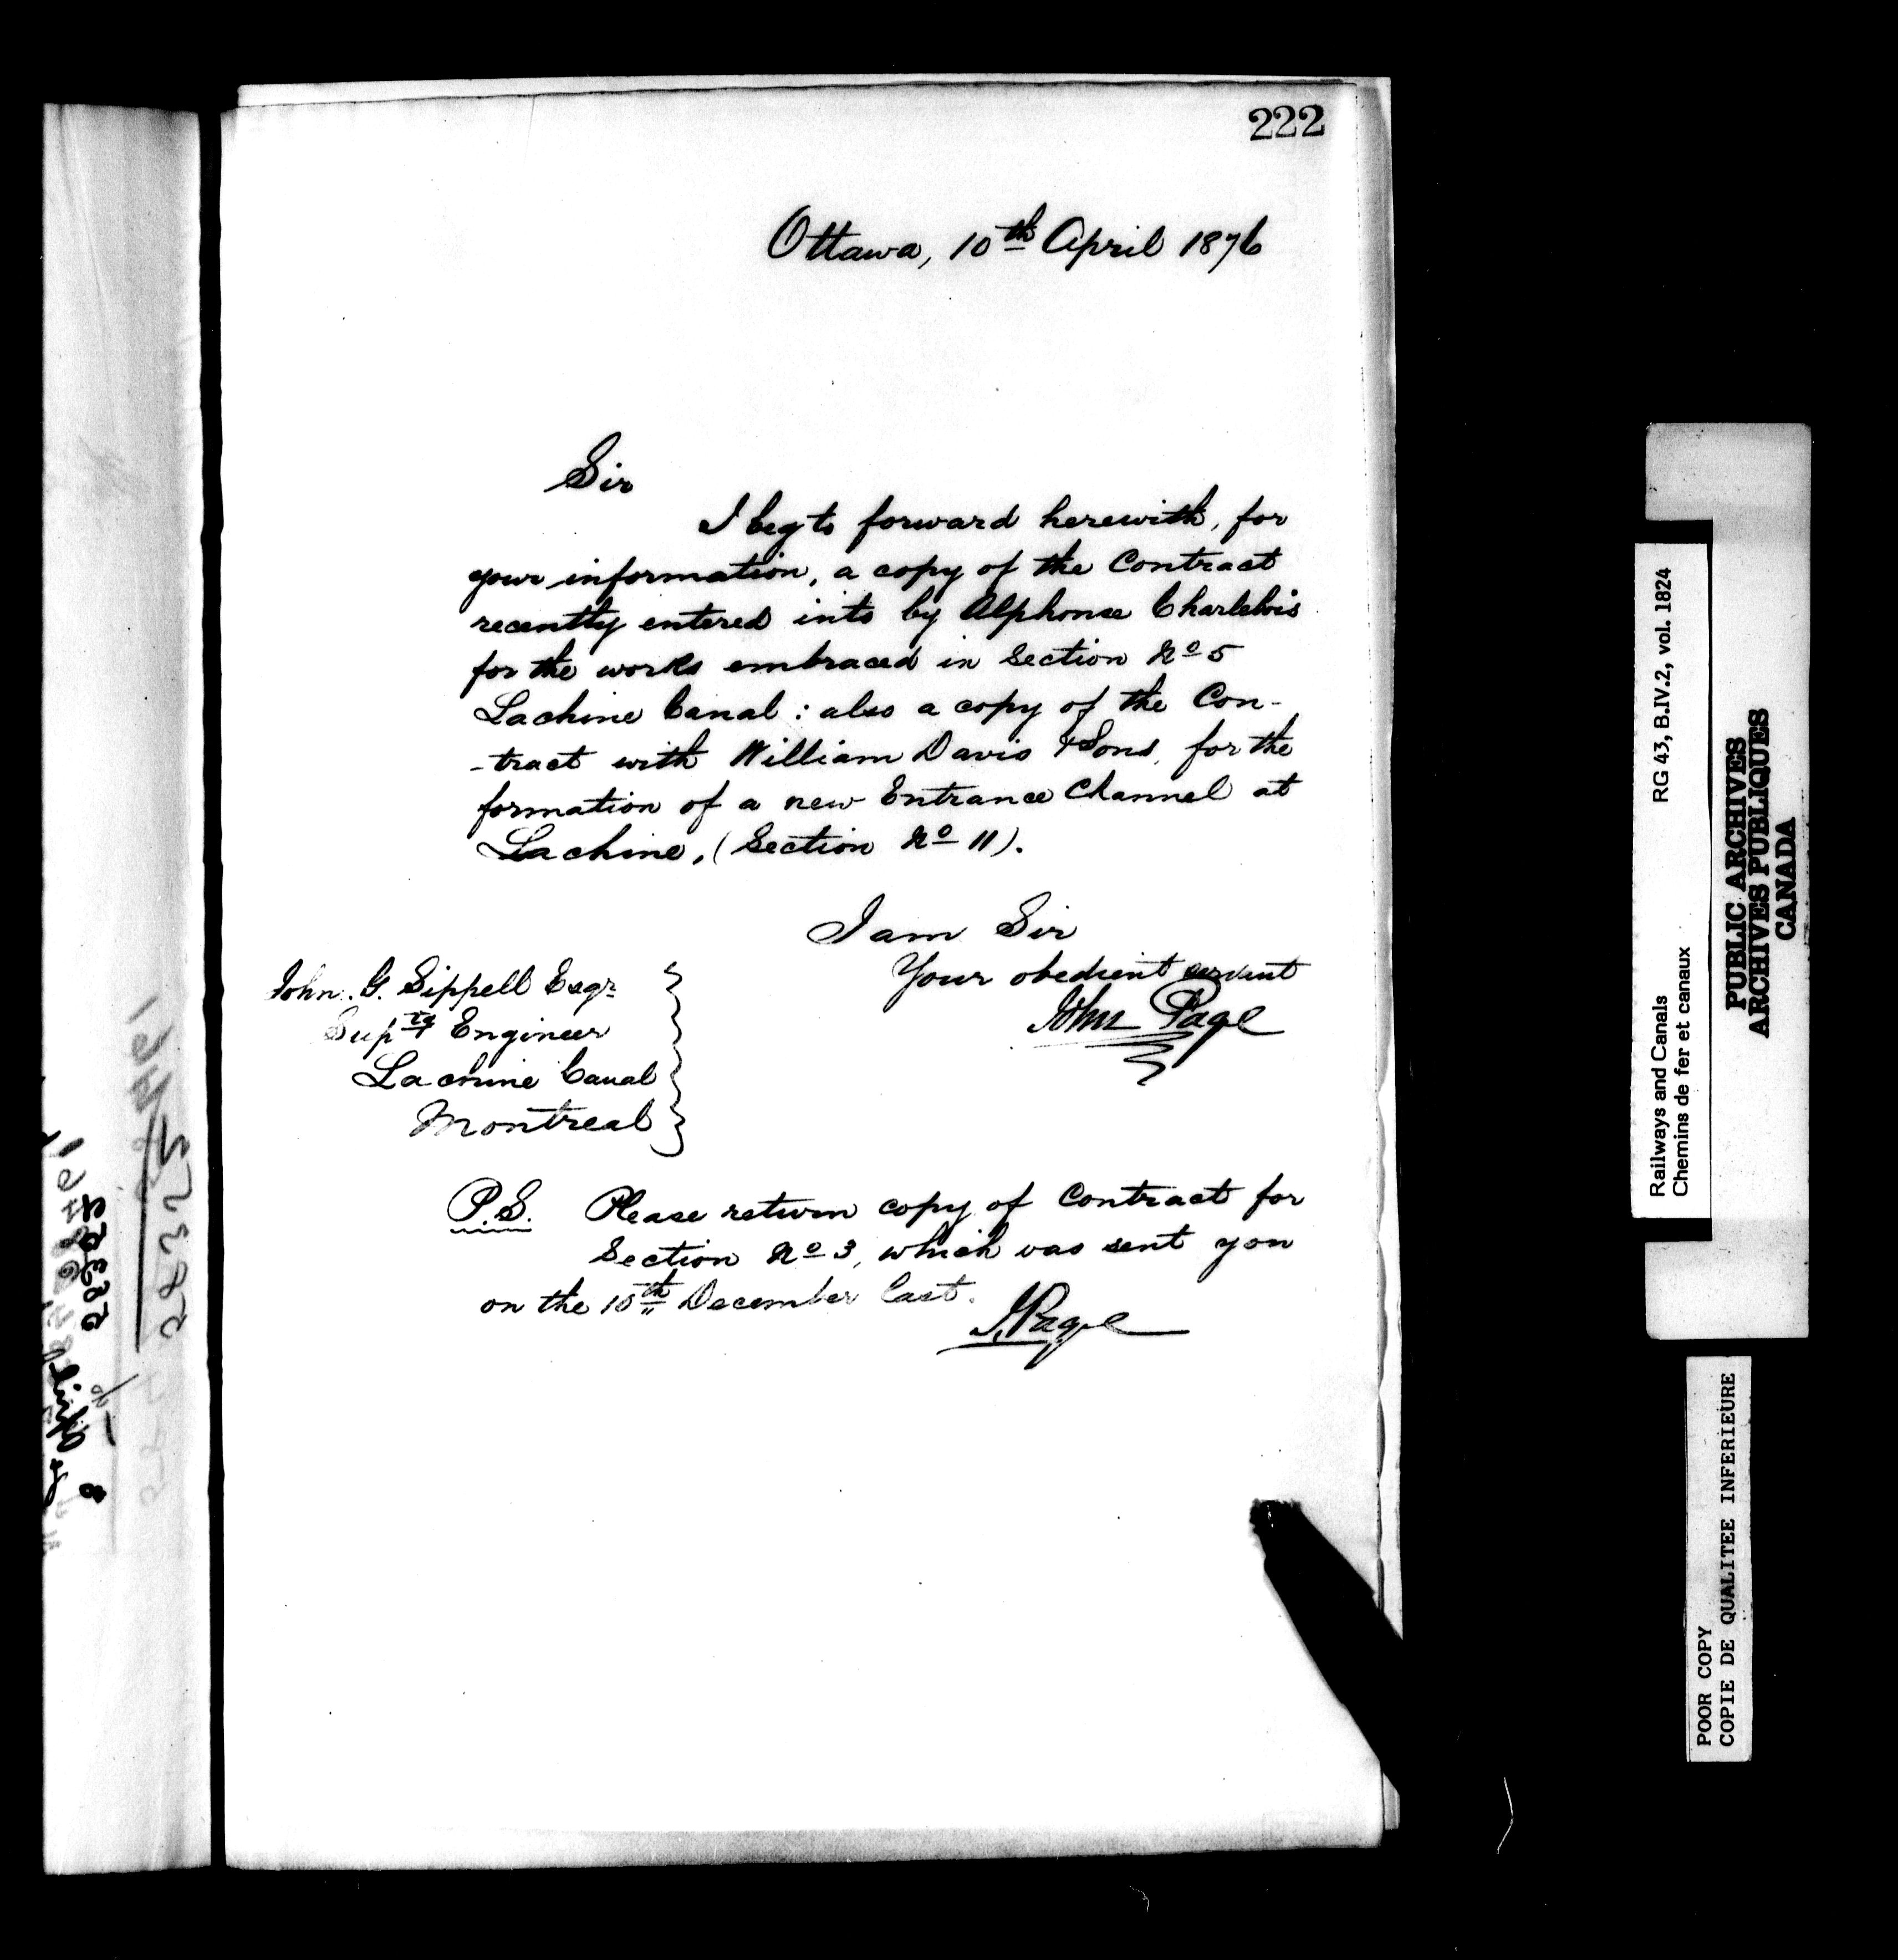 222
Ottawa, 10th April 1876
Sir
I beg to forward herewith, for
your information, a copy of the Contract
recently entered into by Alphonse Charlebois
for the works embraced in Section No 5
Lachine Canal : also a copy of the Con-
-tract with William Davis & Sons, for the
formation of a new Entrance Channel at
Lachine, (Section No 11).
I am Sir
Your obedient servant
John Page
John. G. Sippell Esqr
Suptg Engineer
Lachine Canal
Montreal
P.S. Please return copy of Contract for
Section No 3, which was sent you
on the 10th December last.
J Page
Railways and Canals RG 43, B.IV.2, vol. 1824
Chemins de fer et canaux
PUBLIC ARCHIVES
ARCHIVES PUBLIQUES
CANADA
POOR COPY
COPIE DE QUALITEE INFERIEURE